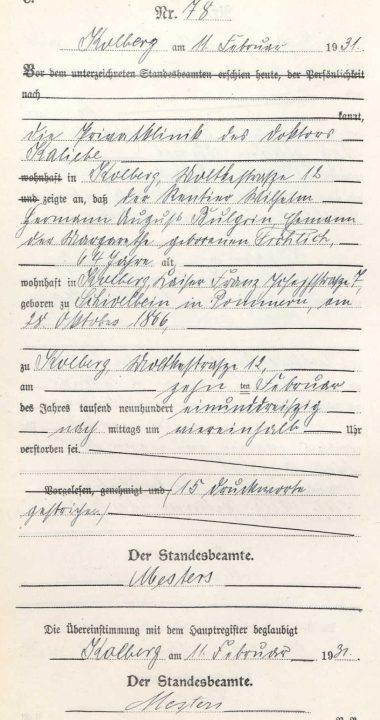 C.
Nr. 78
Kolberg am 11. Februar 1931.
Vor dem unterzeichneten Standesbeamten erschien heute, der Persönlichkeit
nach
kannt,
die Privatklinik des Doktors
Kaliebe
wohnhaft in Kolberg, Moltkestraße 12
und zeigte an, daß der Rentier Wilhelm
Hermann August Bulgrin, Ehemann
der Margarethe geborenen Fröhlich,
64 Jahre alt,
wohnhaft in Kolberg, Kaiser Franz Josephstraße 7,
geboren zu Schivelbein in Pommern, am
28. Oktober 1866,
zu Kolberg, Moltkestraße 12,
am zehn ten Februar
des Jahres tausend neunhundert einunddreißig
nach mittags um viereinhalb Uhr
verstorben sei.
Vorgelesen, genehmigt und (15 Druckworte
gestrichen)
Der Standesbeamte.
Mesters
Die Übereinstimmung mit dem Hauptregister beglaubigt
Kolberg am 11. Februar 1931.
Der Standesbeamte.
Mesters